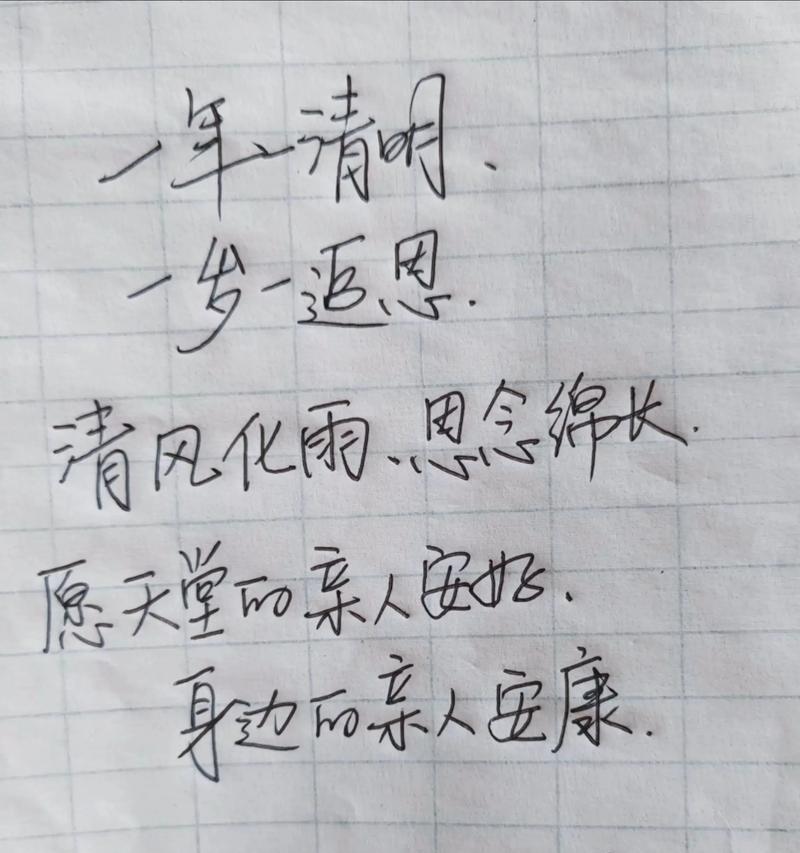 一年一清明、
一岁一追思.
清风化雨、思念绵长.
愿天堂的亲人安好.
身边的亲人安康.